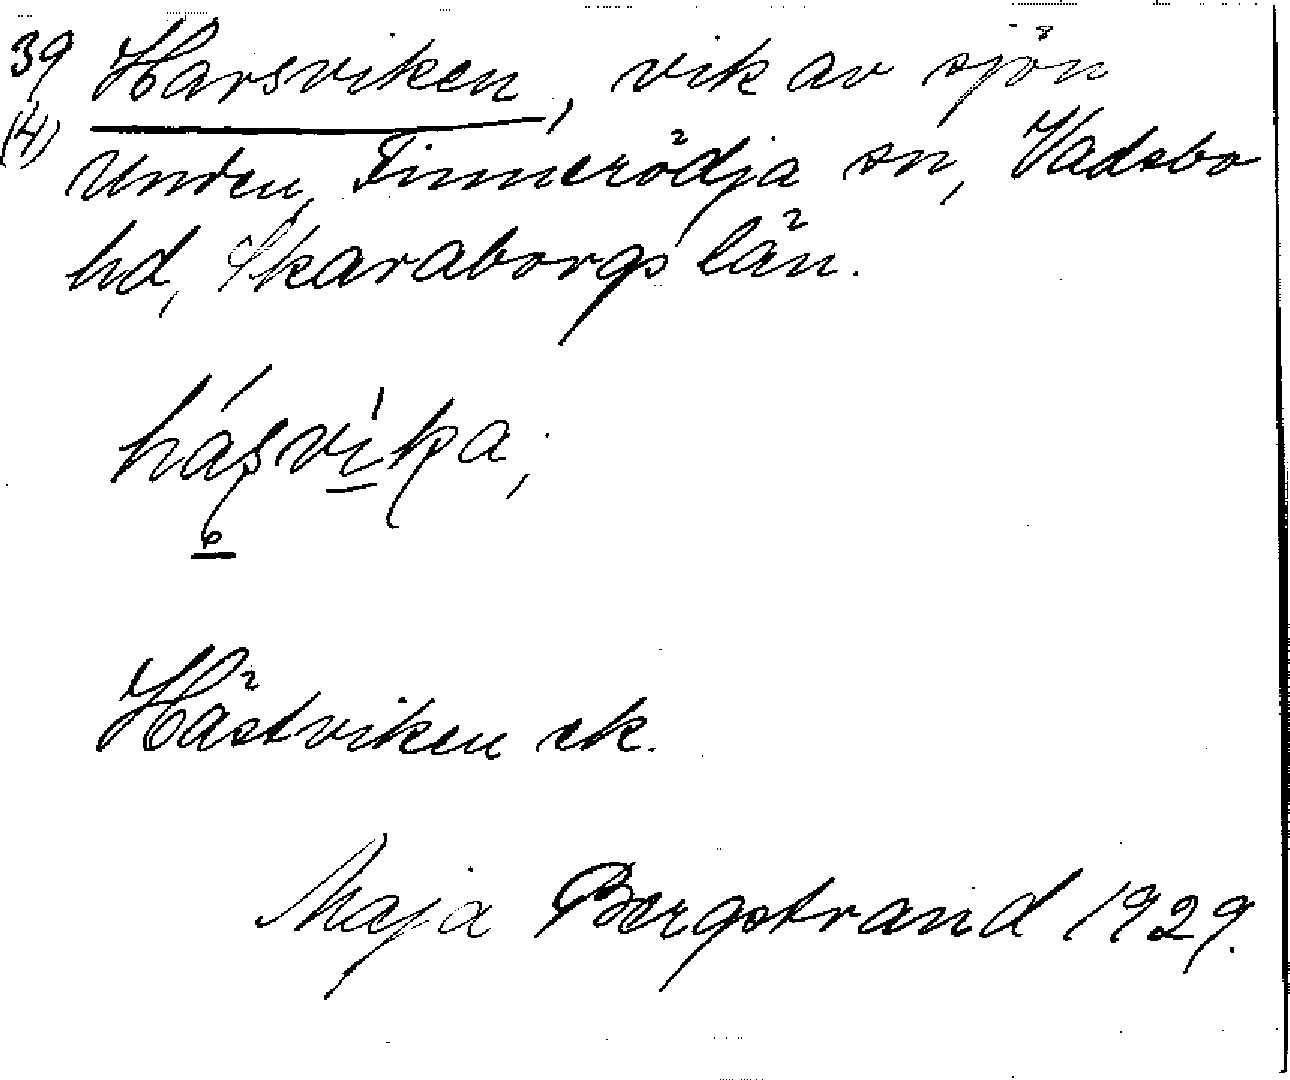 39 Harsviken, vik av sjön
(4) Unden, Finnerödja sn, Vadsbo
hd, Skaraborgs län.
hásvika,
Hästviken ek.
Maja Bergstrand 1929.